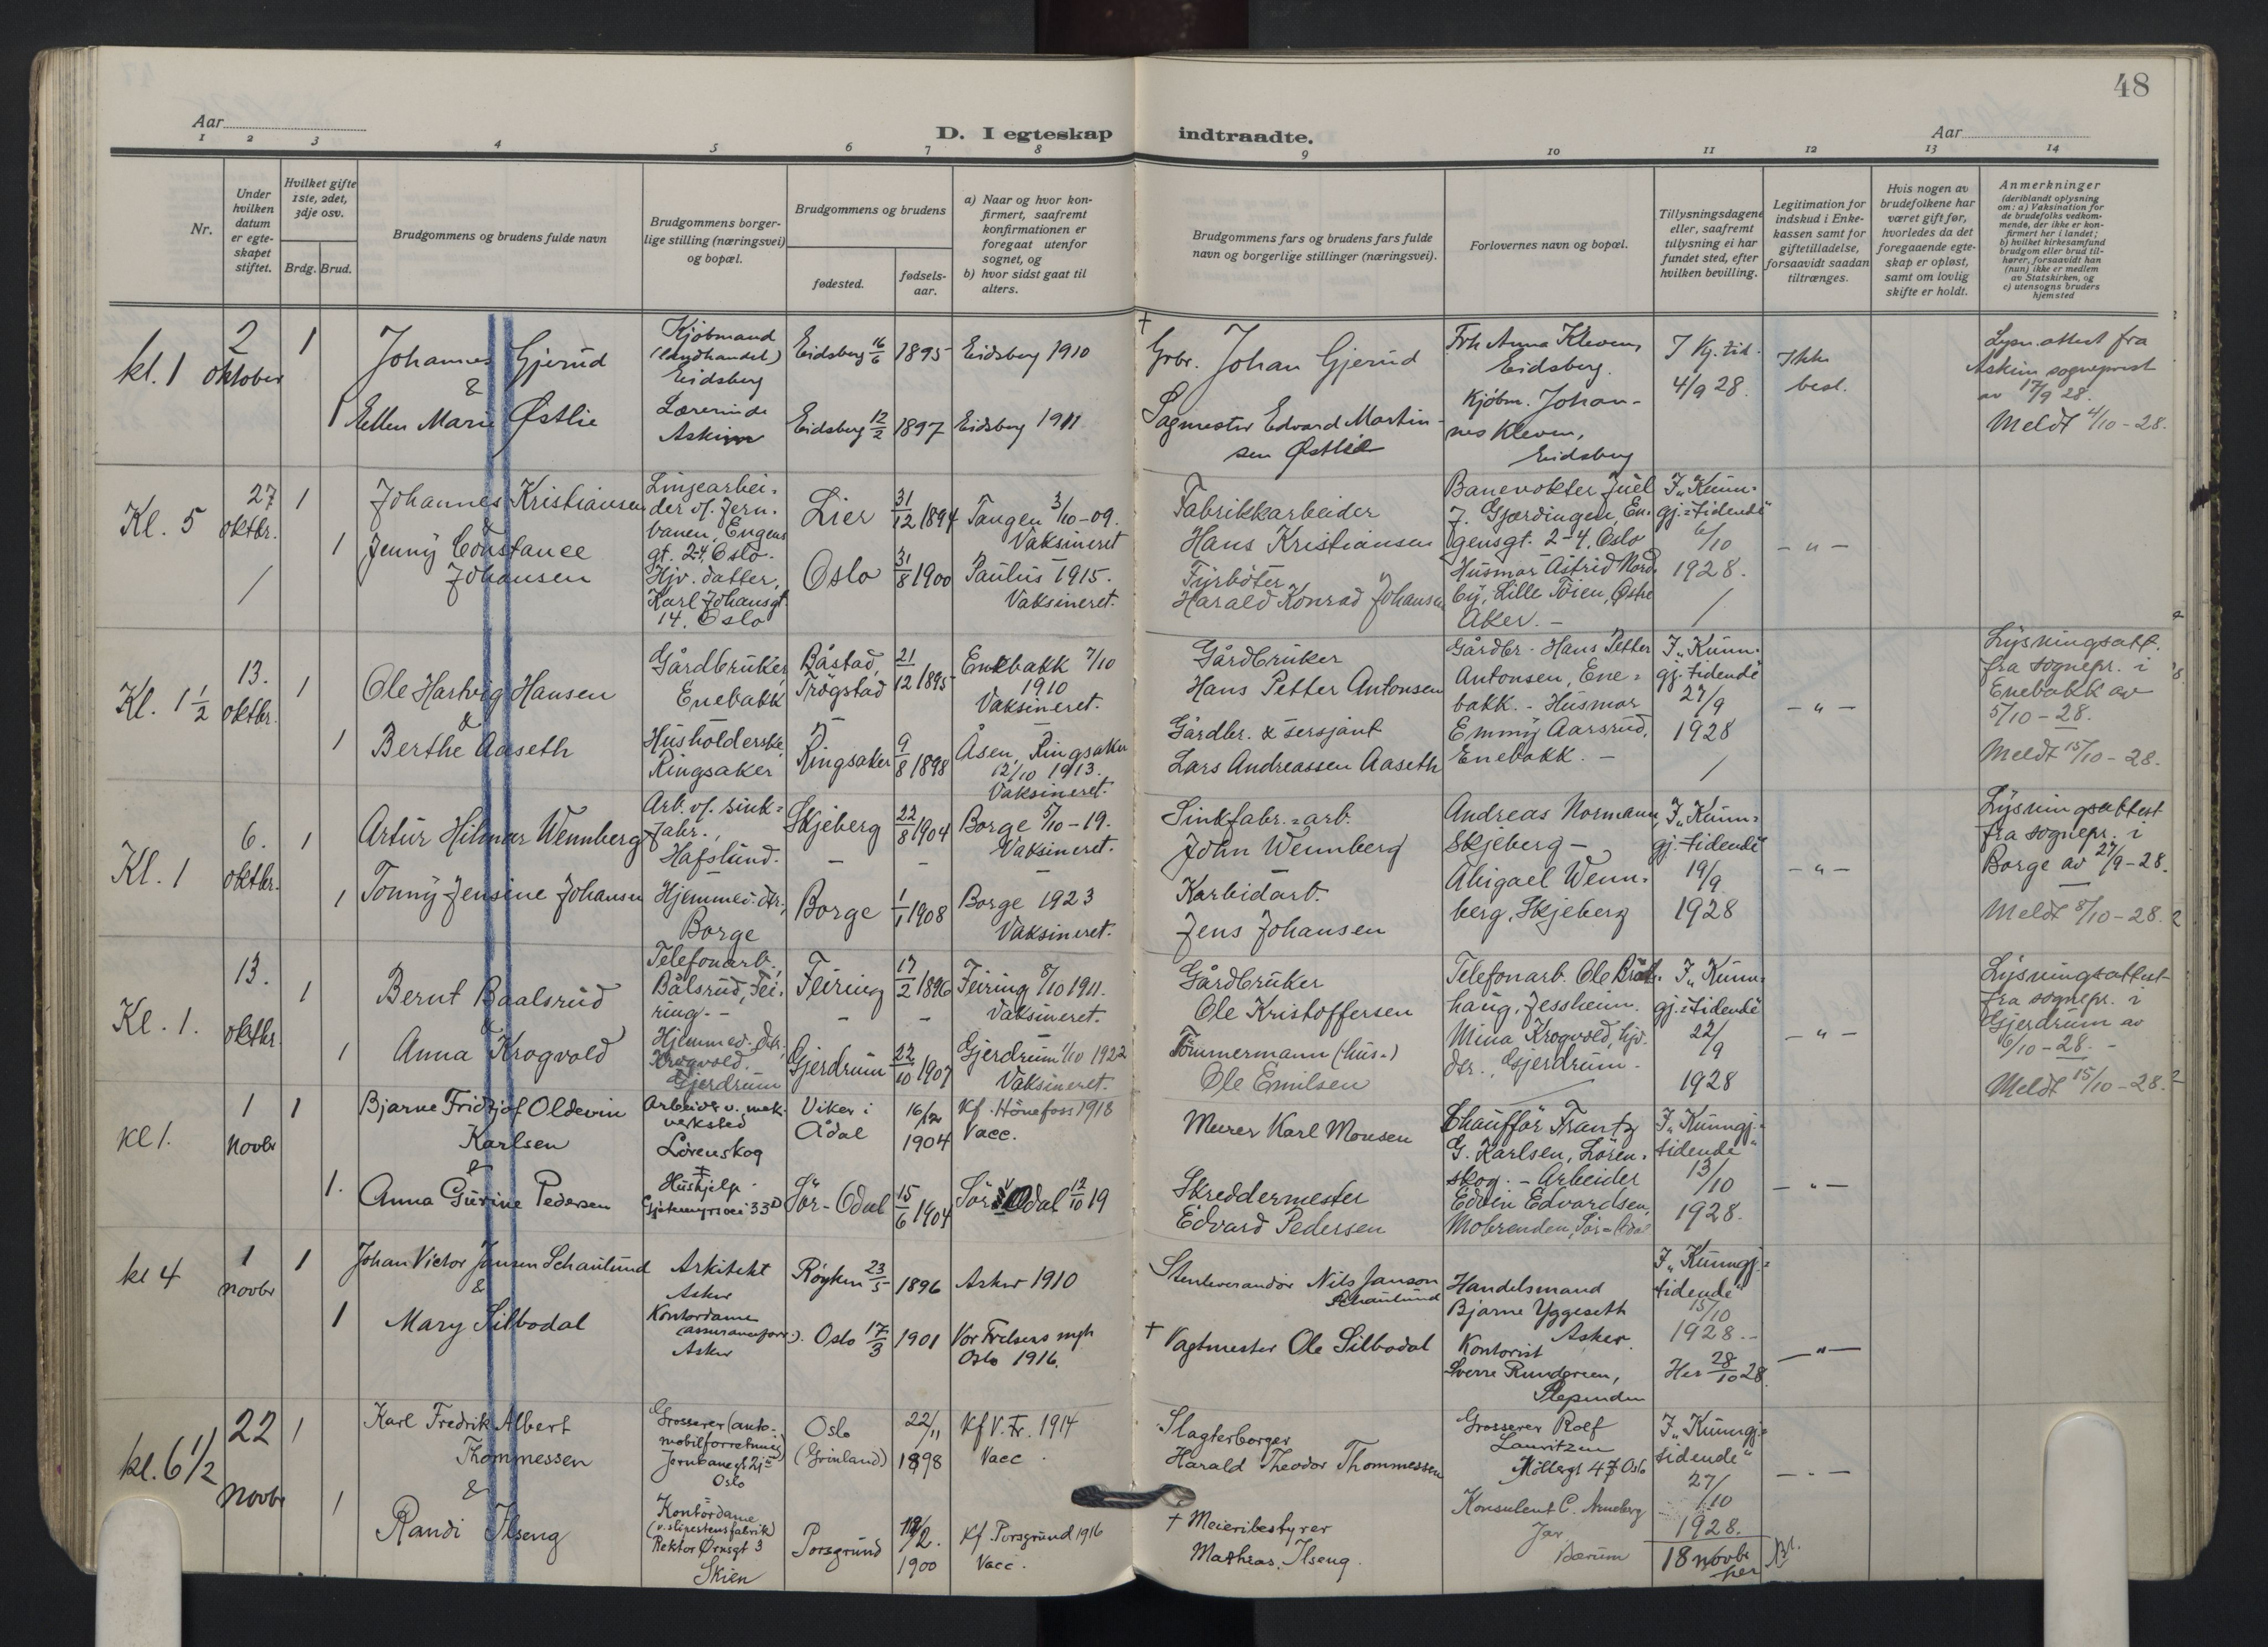 48
Aar
D. I egteskap indtraadte.
Aar
1 2 3 4 5 6 7 8 9 10 11 12 13 14
Nr.
Under hvilken datum er egteskapet stiftet.
Hvilket gifte 1ste, 2det, 3dje osv.
Brdg. Brud.
Brudgommens og brudens fulde navn
Brudgommens borgerlige stilling (næringsvei) og bopæl.
Brudgommens og brudens
fødested.
fødselsaar.
a) Naar og hvor konfirmert, saafremt konfirmationen er foregaat utenfor sognet, og
b) hvor sidst gaat til alters.
Brudgommens fars og brudens fars fulde navn og borgerlige stillinger (næringsvei).
Forlovernes navn og bopæl.
Tillysningsdagene eller, saafremt tillysning ei har fundet sted, efter hvilken bevilling.
Legitimation for indskud i Enkekassen samt for giftetilladelse, forsaavidt saadan tiltrænges.
Hvis nogen av brudefolkene har været gift før, hvorledes da det foregaaende egteskap er opløst, samt om lovlig skifte er holdt.
Anmerkninger (deriblandt oplysning om: a) Vaksination for de brudefolks vedkommende, der ikke er konfirmert her i landet; b) hvilket kirkesamfund brudgom eller brud tilhører, forsaavidt han (hun) ikke er medlem av Statskirken, og c) utensogns bruders hjemsted
kl. 1
2 oktober
1
Johannes Gjerud
&
1 Ellen Marie Østlie
Kjøbmand
(landhandel)
Eidsberg
Lærerinde
Askim
Eidsberg 16/6 1895
Eidsberg 1910
Eidsberg 12/2 1897
Eidsberg 1911
† Grbr. Johan Gjerud
Sagmester Edvard Martinsen Østlie
Frk Anna Kleven,
Eidsberg.
Kjøbm. Johan-
nes Kleven,
Eidsberg
I Kj. tid.
4/9 28.
Ikke
best.
Lysn. attest fra
Askim sogneprest
av 17/9 28.
Meldt 4/10 - 28.
Kl. 5
27 oktbr.
1
Johannes Kristiansen
&
1 Jenny Constance
Johansen
Linjearbei-
der v/. Jern-
banen, Engens
gt. 24, Oslo.
Hjv. datter,
Karl Johansgt.
14. Oslo
Lier 31/12 1894
Tangen 3/10 - 09.
Vaksineret
Oslo 31/8 1900
Paulus 1915.
Vaksineret.
Fabrikkarbeider
Hans Kristiansen
Fyrbøter
Harald Konrad Johansen
Banevokter Juel
J. Gjærdingen, En-
gensgt. 2-4. Oslo
Husmor Astrid Nord-
by, Lille Tøien, Østre
Aker. -
I „Kunn-
gj.=tidende“
6/10
1928.
- " -
Kl. 1 1/2
13. oktbr.
1
Ole Hartvig Hansen
&
1 Berthe Aaseth
Gårdbruker
Enebakk
Husholderske,
Ringsaker
Båstad,
Trøgstad 21/12 1895
Enebakk 7/10
1910
Vaksineret.
Ringsaker 9/8 1898
Åsen, Ringsaker
12/10 1913.
Vaksineret.
Gårdbruker
Hans Petter Antonsen
Gårdbr. & sersjant
Lars Andreassen Aaseth
Gårdbr. Hans Petter
Antonsen, Ene-
bakk. - Husmor
Emmy Aarsrud,
Enebakk. -
I „Kunn-
gj.-tidende“
27/9
1928
- " -
Lysningsatt.
fra sognepr. i
Enebakk av
5/10 - 28.
Meldt 15/10 - 28.
Kl. 1
6. oktbr.
1
Artur Hilmar Wennberg
1 Tonny Jensine Johansen
Arb. v/. sink-
fabr.,
Hafslund.
Hjemmev. dtr.,
Borge
Skjeberg 22/8 1904
Borge 5/10 - 19.
Vaksineret.
Borge 1/1 1908
Borge 1923
Vaksineret.
Sinkfabr.=arb.
John Wennberg
Karbidarb.
Jens Johansen
Andreas Normann,
Skjeberg -
Abigael Wenn-
berg, Skjeberg
I „Kunn-
gj.-tidende“
19/9
1928
- " -
Lysningsattest
fra sognepr. i
Borge av 27/9 - 28.
Meldt 8/10 - 28.
Kl. 1.
13. oktbr.
1
Bernt Baalsrud
&
1 Anna Krogvold
Telefonarb.,
Bålsrud, Fei-
ring. -
Hjemmev. dtr.,
Krogvold,
Gjerdrum
Feiring 17/2 1896
Feiring 8/10 1911.
Vaksineret.
Gjerdrum 22/10 1907
Gjerdrum 1/10 1922
Vaksineret.
Gårdbruker
Ole Kristoffersen
Tømmermann (hus-)
Ole Emilsen
Telefonarb. Ole Bråt-
haug, Jessheim.
Mina Krogvold, hjv.
dtr., Gjerdrum.
I „Kunn-
gj.=tidende“
22/9
1928
- " -
Lysningsattest
fra sognepr. i
Gjerdrum av
6/10 - 28. -
Meldt 15/10 - 28.
kl 1.
1 Novbr
1
Bjarne Fridtjof Oldevin
Karlsen
&
1. Anna Gurine Pedersen
Arbeider v. mek.
verksted
Lörenskog
Hushjelp
Viker i
Ådal
16/12
1904
Kf. Hönefoss 1918
Vacc.
Sör-Odal 15/6 1904
Sör Odal 12/10 19
Murer Karl Monsen
Skreddermester
Edvard Pedersen
Chauffør Frantz
G. Karlsen, Lören-
skog. - Arbeider
Edvin Edvardsen,
Mobrenden, Sör-Odal
I „Kunngj.-
tidende“
13/10
1928.
- " -
kl 4
1 novbr
1
Johan Victor Janson Schaulund
&
1 Mary Silbodal
Arkitekt
Asker
Kontordame
Asker
Røyken 23/5 1896
Asker 1910
Oslo 17/3 1901
Vor Frelsers mgh
Oslo 1916.
Stenleverandör Nils Janson
Schaulund
† Vagtmester Ole Silbodal
Handelsmand
Bjarne Yggeseth
Asker.
Kontorist
Sverre Rundgreen,
Slependen
I „Kunngj.=
tidende“
15/10
1928. -
Her 28/10 28.
- " -
kl. 6 1/2
22 Novbr
1
Karl Fredrik Albert
Thommessen
&
1 Randi Ilseng
Grosserer (auto-
mobilforretning)
Oslo
Kontordame
(v. slipestensfabrik)
Rektor Ørnsgt 3
Skien
Oslo
(Grönland)
22/11
1898
Kf V. Fr. 1914
Vacc.
Porsgrund
1900
Kf. Porsgrund 1916
Vacc.
Slagterborger
Harald Theodor Thommessen
† Meieribestyrer
Mathias Ilseng.
Grosserer Rolf
Lauritzen
Konsulent C. Arneberg
Jar
Bærum
I „Kunngj.=
tidende“
27/10
1928.
18 novbr
her
- " -